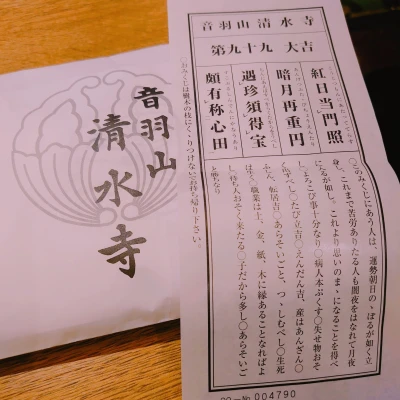 音羽山
清水寺
音羽山清水寺
第九十九 大吉
紅日当門照
暗月再重円
遇珍須得宝
頗有称心田
〇このみくじにあう人は、運勢朝日の、ぼるが如く立
身し、これまで苦労ありたる人も闇夜をはなれて月夜
になるが如し。これより思いのまゝになることを得べ
し〇よろこび事十分なり〇病人本ぷくす〇失せ物おそ
く出ずべし〇たび立吉〇えんだん吉、産はあんざん〇
ふしん、転居吉〇あらそいごと、つゝしむべし〇生死
は生く〇職業は土、金、紙、木に縁あることなればよ
し〇待ち人おそく来たる〇子だから多し〇あらそいご
と勝なり
おみくじは樹木の枝にくゝりつけないでお持ち帰り下さい。
004790